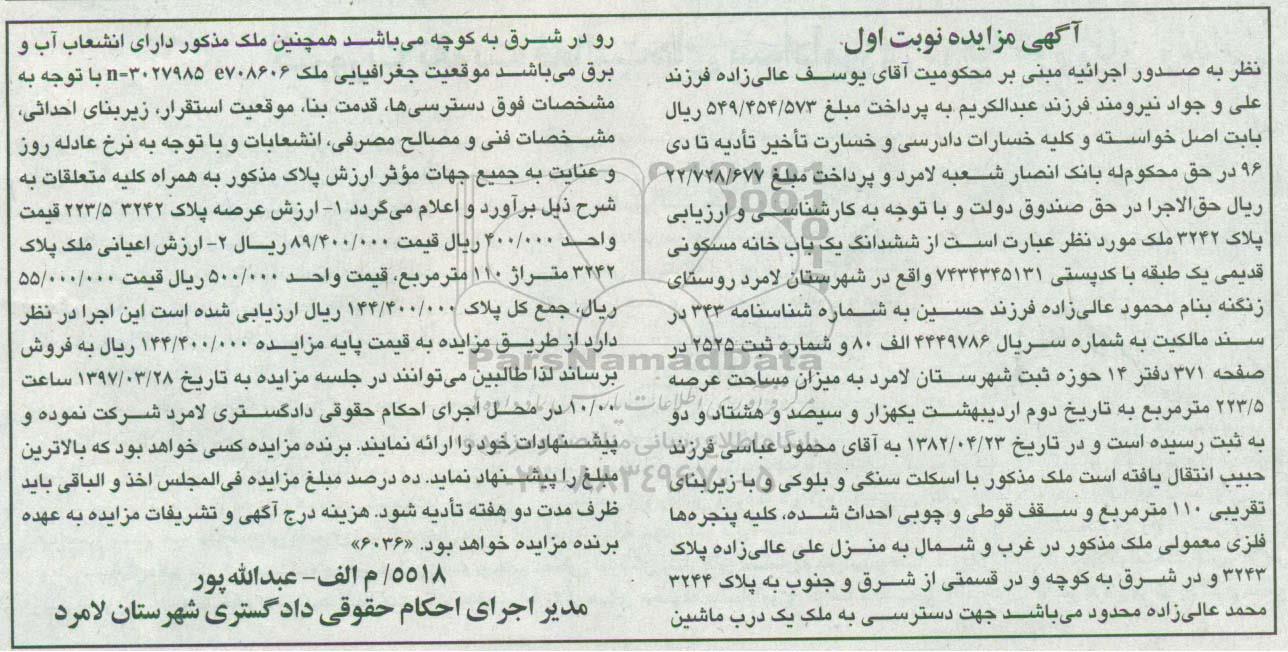 آگهی مزایده نوبت اول
نظر به صدور اجرائیه مبنی بر محکومیت آقای یوسف عالی‌زاده فرزند
علی و جواد نیرومند فرزند عبدالکریم به پرداخت مبلغ ۵۴۹/۴۵۴/۵۷۳ ریال
بابت اصل خواسته و کلیه خسارات دادرسی و خسارت تأخیر تأدیه تا دی
۹۶ در حق محکوم‌له بانک انصار شعبه لامرد و پرداخت مبلغ ۲۲/۷۲۸/۶۷۷
ریال حق‌الاجرا در حق صندوق دولت و با توجه به کارشناسی و ارزیابی
پلاک ۳۲۴۲ ملک مورد نظر عبارت است از ششدانگ یک باب خانه مسکونی
قدیمی یک طبقه با کدپستی ۷۴۳۴۳۴۵۱۳۱ واقع در شهرستان لامرد روستای
زنگنه بنام محمود عالی‌زاده فرزند حسین به شماره شناسنامه ۳۴۳ در
سند مالکیت به شماره سریال ۴۴۴۹۷۸۶ الف ۸۰ و شماره ثبت ۲۵۲۵ در
صفحه ۳۷۱ دفتر ۱۴ حوزه ثبت شهرستان لامرد به میزان مساحت عرصه
۲۲۳/۵ مترمربع به تاریخ دوم اردیبهشت یکهزار و سیصد و هشتاد و دو
به ثبت رسیده است و در تاریخ ۱۳۸۲/۰۴/۲۳ به آقای محمود عباسی فرزند
حبیب انتقال یافته است ملک مذکور با اسکلت سنگی و بلوکی و با زیربنای
تقریبی ۱۱۰ مترمربع و سقف قوطی و چوبی احداث شده، کلیه پنجره‌ها
فلزی معمولی ملک مذکور در غرب و شمال به منزل علی عالی‌زاده پلاک
۳۲۴۳ و در شرق به کوچه و در قسمتی از شرق و جنوب به پلاک ۳۲۴۴
محمد عالی‌زاده محدود می‌باشد جهت دسترسی به ملک یک درب ماشین
رو در شرق به کوچه می‌باشد همچنین ملک مذکور دارای انشعاب آب و
برق می‌باشد موقعیت جغرافیایی ملک e۷۰۸۶۰۶ n=۳۰۲۷۹۸۵ با توجه به
مشخصات فوق دسترسی‌ها، قدمت بنا، موقعیت استقرار، زیربنای احداثی،
مشخصات فنی و مصالح مصرفی، انشعابات و با توجه به نرخ عادله روز
و عنایت به جمیع جهات مؤثر ارزش پلاک مذکور به همراه کلیه متعلقات به
شرح ذیل برآورد و اعلام می‌گردد ۱- ارزش عرصه پلاک ۳۲۴۲ ۲۲۳/۵ قیمت
واحد ۴۰۰/۰۰۰ ریال قیمت ۸۹/۴۰۰/۰۰۰ ریال ۲- ارزش اعیانی ملک پلاک
۳۲۴۲ متراژ ۱۱۰ مترمربع، قیمت واحد ۵۰۰/۰۰۰ ریال قیمت ۵۵/۰۰۰/۰۰۰
ریال، جمع کل پلاک ۱۴۴/۴۰۰/۰۰۰ ریال ارزیابی شده است این اجرا در نظر
دارد از طریق مزایده به قیمت پایه مزایده ۱۴۴/۴۰۰/۰۰۰ ریال به فروش
برساند لذا طالبین می‌توانند در جلسه مزایده به تاریخ ۱۳۹۷/۰۳/۲۸ ساعت
۱۰/۰۰ در محل اجرای احکام حقوقی دادگستری لامرد شرکت نموده و
پیشنهادات خود را ارائه نمایند. برنده مزایده کسی خواهد بود که بالاترین
مبلغ را پیشنهاد نماید. ده درصد مبلغ مزایده فی‌المجلس اخذ و الباقی باید
ظرف مدت دو هفته تأدیه شود. هزینه درج آگهی و تشریفات مزایده به عهده
برنده مزایده خواهد بود. «۶۰۳۶»
۵۵۱۸/ م الف- عبدالله‌پور
مدیر اجرای احکام حقوقی دادگستری شهرستان لامرد
ParsNamadData